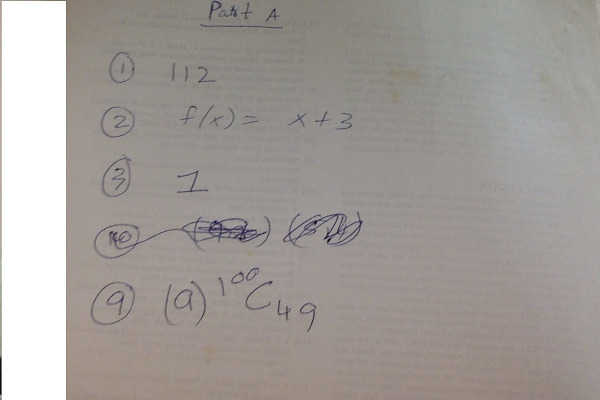 Part A
① 112
② f(x) = x+3
③ 1
⑨ (a) ¹⁰⁰C₄₉